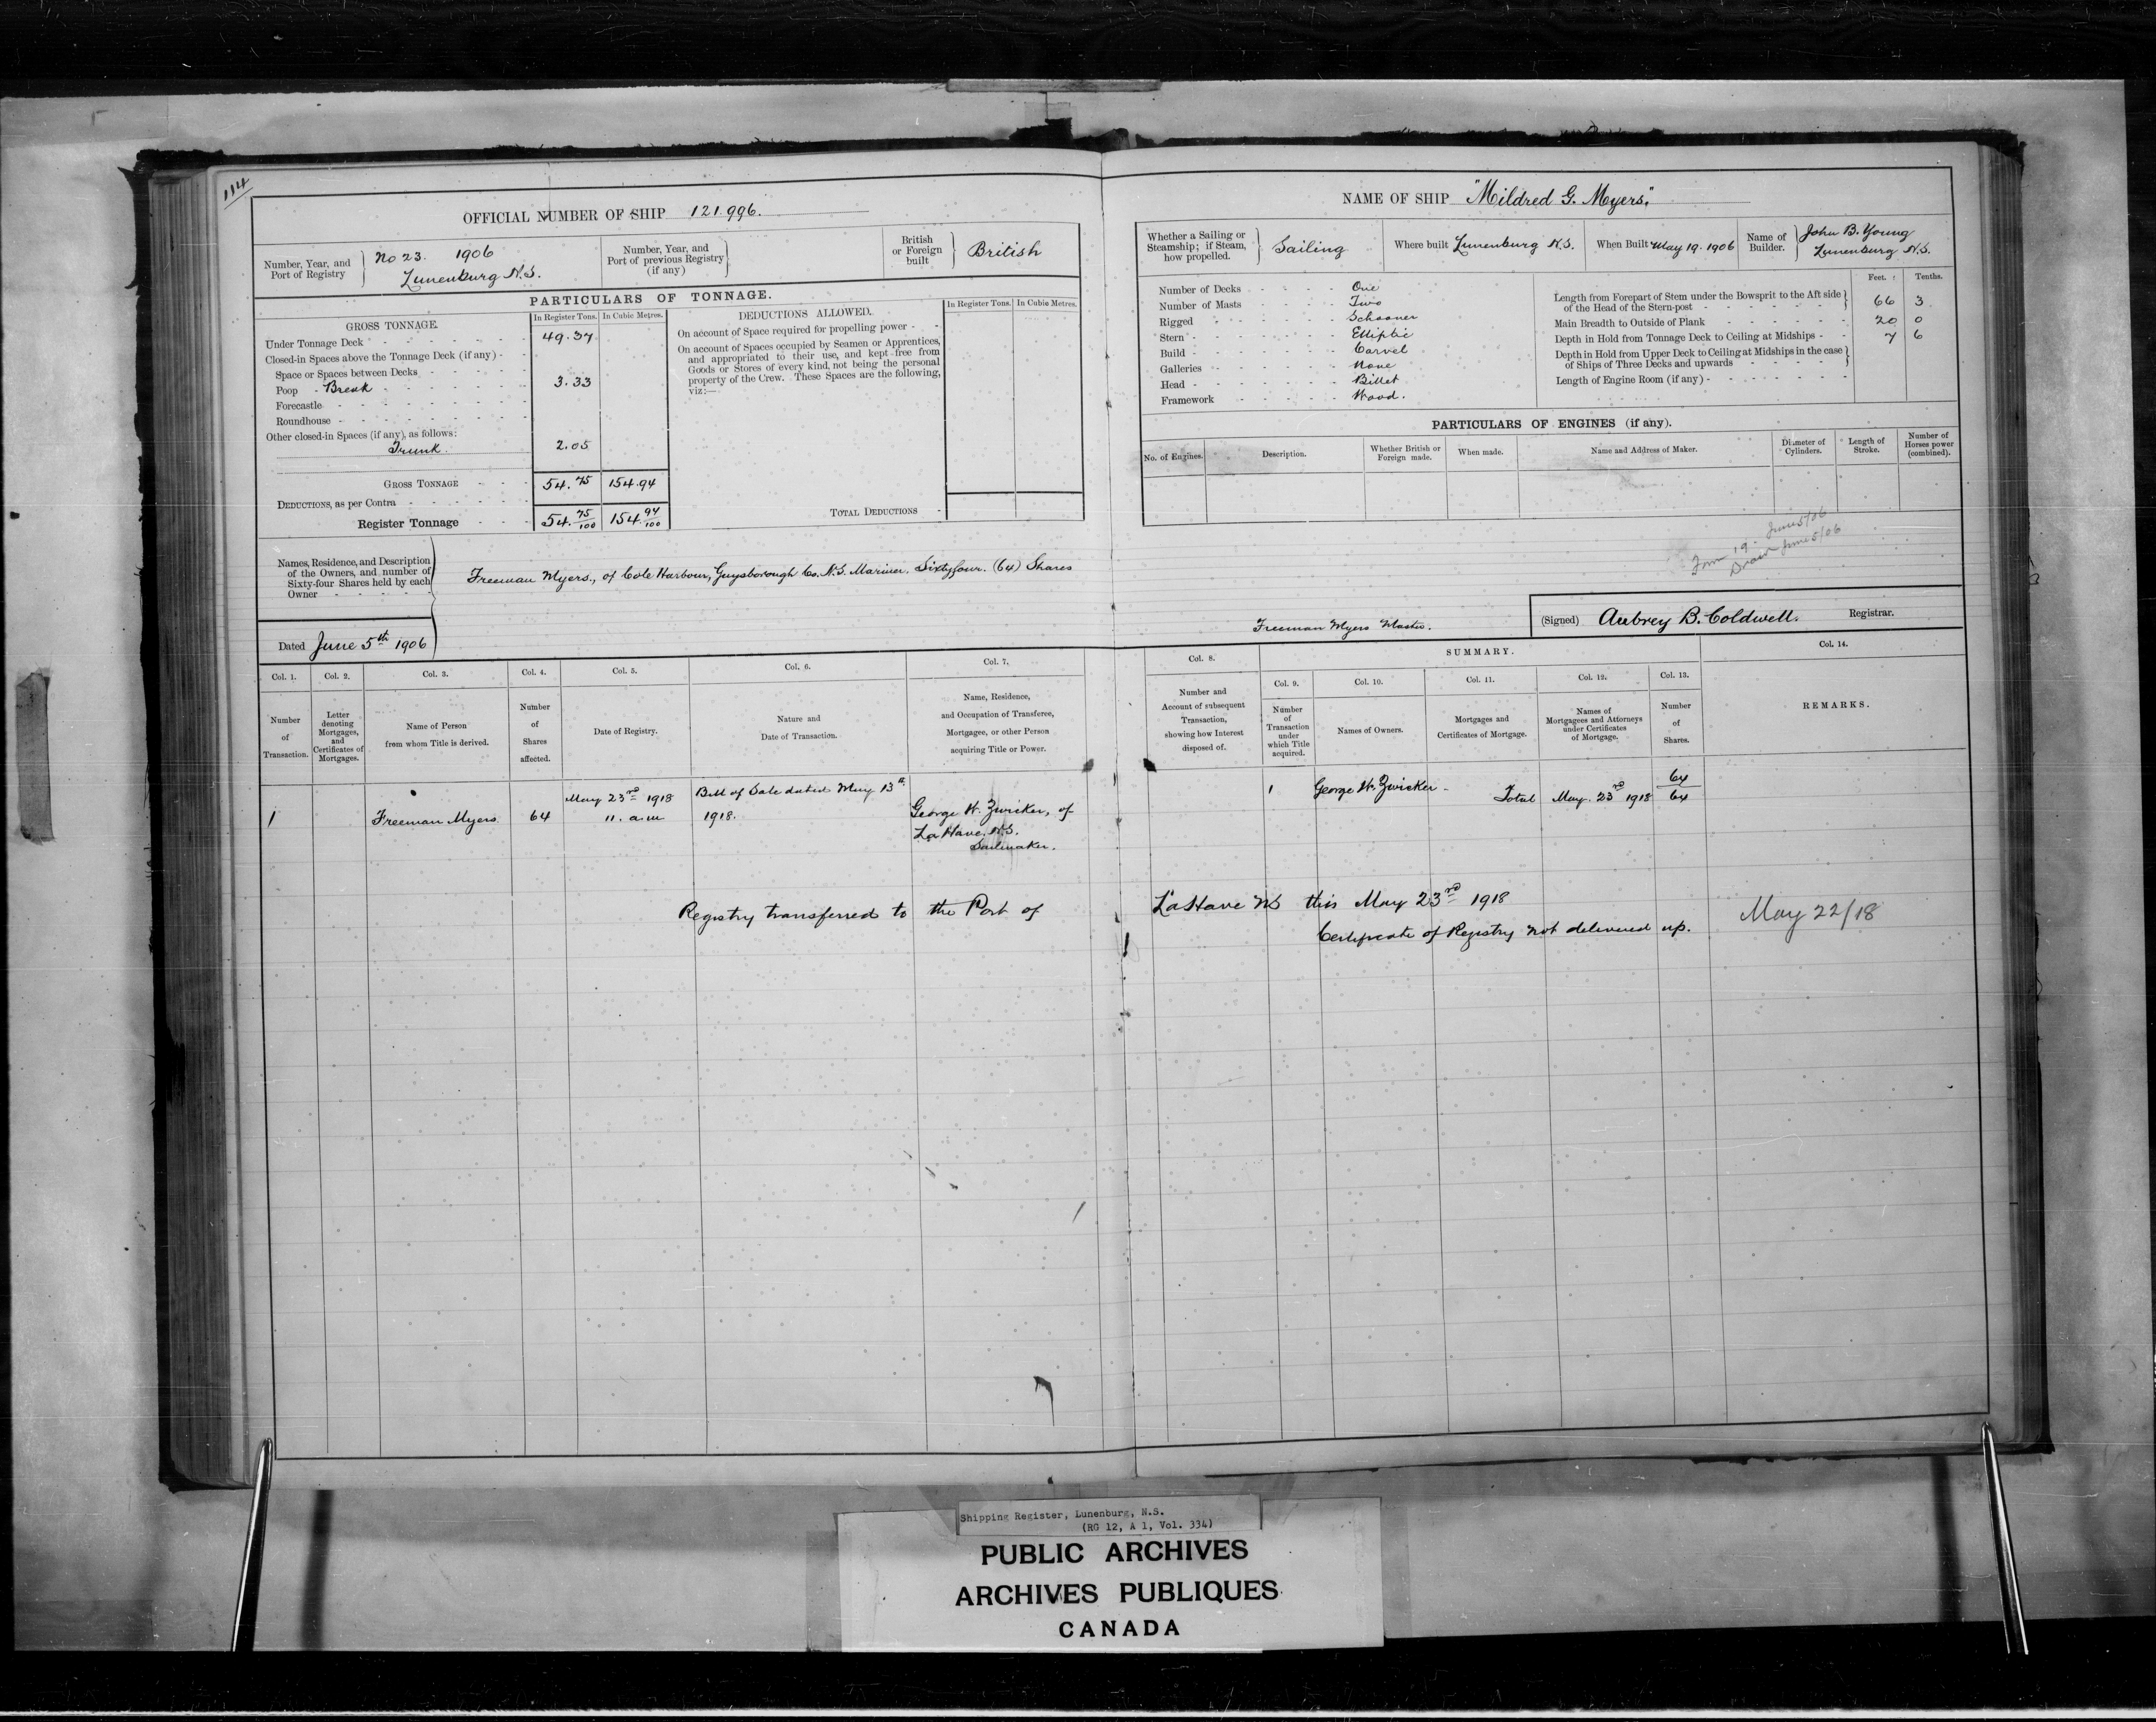 114
OFFICIAL NUMBER OF SHIP 121.996.
Number, Year, and
Port of Registry
No 23. 1906
Lunenburg N.S.
Number, Year, and
Port of previous Registry
(if any)
British
or Foreign
built
British
PARTICULARS OF TONNAGE.
GROSS TONNAGE.
In Register Tons. In Cubic Metres.
Under Tonnage Deck 49.37
Closed-in Spaces above the Tonnage Deck (if any)
Space or Spaces between Decks
Poop - Break 3.33
Forecastle
Roundhouse
Other closed-in Spaces (if any), as follows:
Trunk. 2.05
GROSS TONNAGE 54.75 154.94
DEDUCTIONS, as per Contra
Register Tonnage 54. 75/100 154. 94/100
DEDUCTIONS ALLOWED.
In Register Tons. In Cubic Metres.
On account of Space required for propelling power
On account of Spaces occupied by Seamen or Apprentices,
and appropriated to their use, and kept free from
Goods or Stores of every kind, not being the personal
property of the Crew. These Spaces are the following,
viz:—
TOTAL DEDUCTIONS
Names, Residence, and Description
of the Owners, and number of
Sixty-four Shares held by each
Owner
Freeman Myers., of Cole Harbour, Guysborough Co. N.S. Mariner. Sixtyfour. (64) Shares
Dated June 5th 1906
NAME OF SHIP "Mildred G. Myers."
Whether a Sailing or
Steamship; if Steam,
how propelled.
Sailing
Where built Lunenburg N.S.
When Built May 19. 1906
Name of
Builder.
John B. Young
Lunenburg N.S.
Number of Decks One
Number of Masts Two
Rigged Schooner
Stern Elliptic
Build Carvel
Galleries None
Head Billet
Framework Wood.
Feet. Tenths.
Length from Forepart of Stem under the Bowsprit to the Aft side
of the Head of the Stern-post 66 3
Main Breadth to Outside of Plank 20 0
Depth in Hold from Tonnage Deck to Ceiling at Midships 7 6
Depth in Hold from Upper Deck to Ceiling at Midships in the case
of Ships of Three Decks and upwards
Length of Engine Room (if any)
PARTICULARS OF ENGINES (if any).
No. of Engines.
Description.
Whether British or
Foreign made.
When made.
Name and Address of Maker.
Diameter of
Cylinders.
Length of
Stroke.
Number of
Horses power
(combined).
Form 19. June 5/06
June 5/06
Freeman Myers Master.
(Signed) Aubrey B. Coldwell. Registrar.
Col. 1.
Number
of
Transaction.
Col. 2.
Letter
denoting
Mortgages,
and
Certificates of
Mortgages.
Col. 3.
Name of Person
from whom Title is derived.
Col. 4.
Number
of
Shares
affected.
Col. 5.
Date of Registry.
Col. 6.
Nature and
Date of Transaction.
Col. 7.
Name, Residence,
and Occupation of Transferee,
Mortgagee, or other Person
acquiring Title or Power.
Col. 8.
Number and
Account of subsequent
Transaction,
showing how Interest
disposed of.
SUMMARY.
Col. 9.
Number
of
Transaction
under
which Title
acquired.
Col. 10.
Names of Owners.
Col. 11.
Mortgages and
Certificates of Mortgage.
Col. 12.
Names of
Mortgagees and Attorneys
under Certificates
of Mortgage.
Col. 13.
Number
of
Shares.
Col. 14.
REMARKS.
1
Freeman Myers
64
May 23rd 1918
11. a.m
Bill of Sale dated May 13th
1918.
George H. Zwicker, of
La Have, N.S.
Sailmaker.
1
George H. Zwicker -
64
Total May. 23rd 1918 64
Registry transferred to the Port of LaHave NS this May 23rd 1918
Certificate of Registry not delivered up.
May 22/18
Shipping Register, Lunenburg, N.S.
(RG 12, A 1, Vol. 334)
PUBLIC ARCHIVES
ARCHIVES PUBLIQUES
CANADA